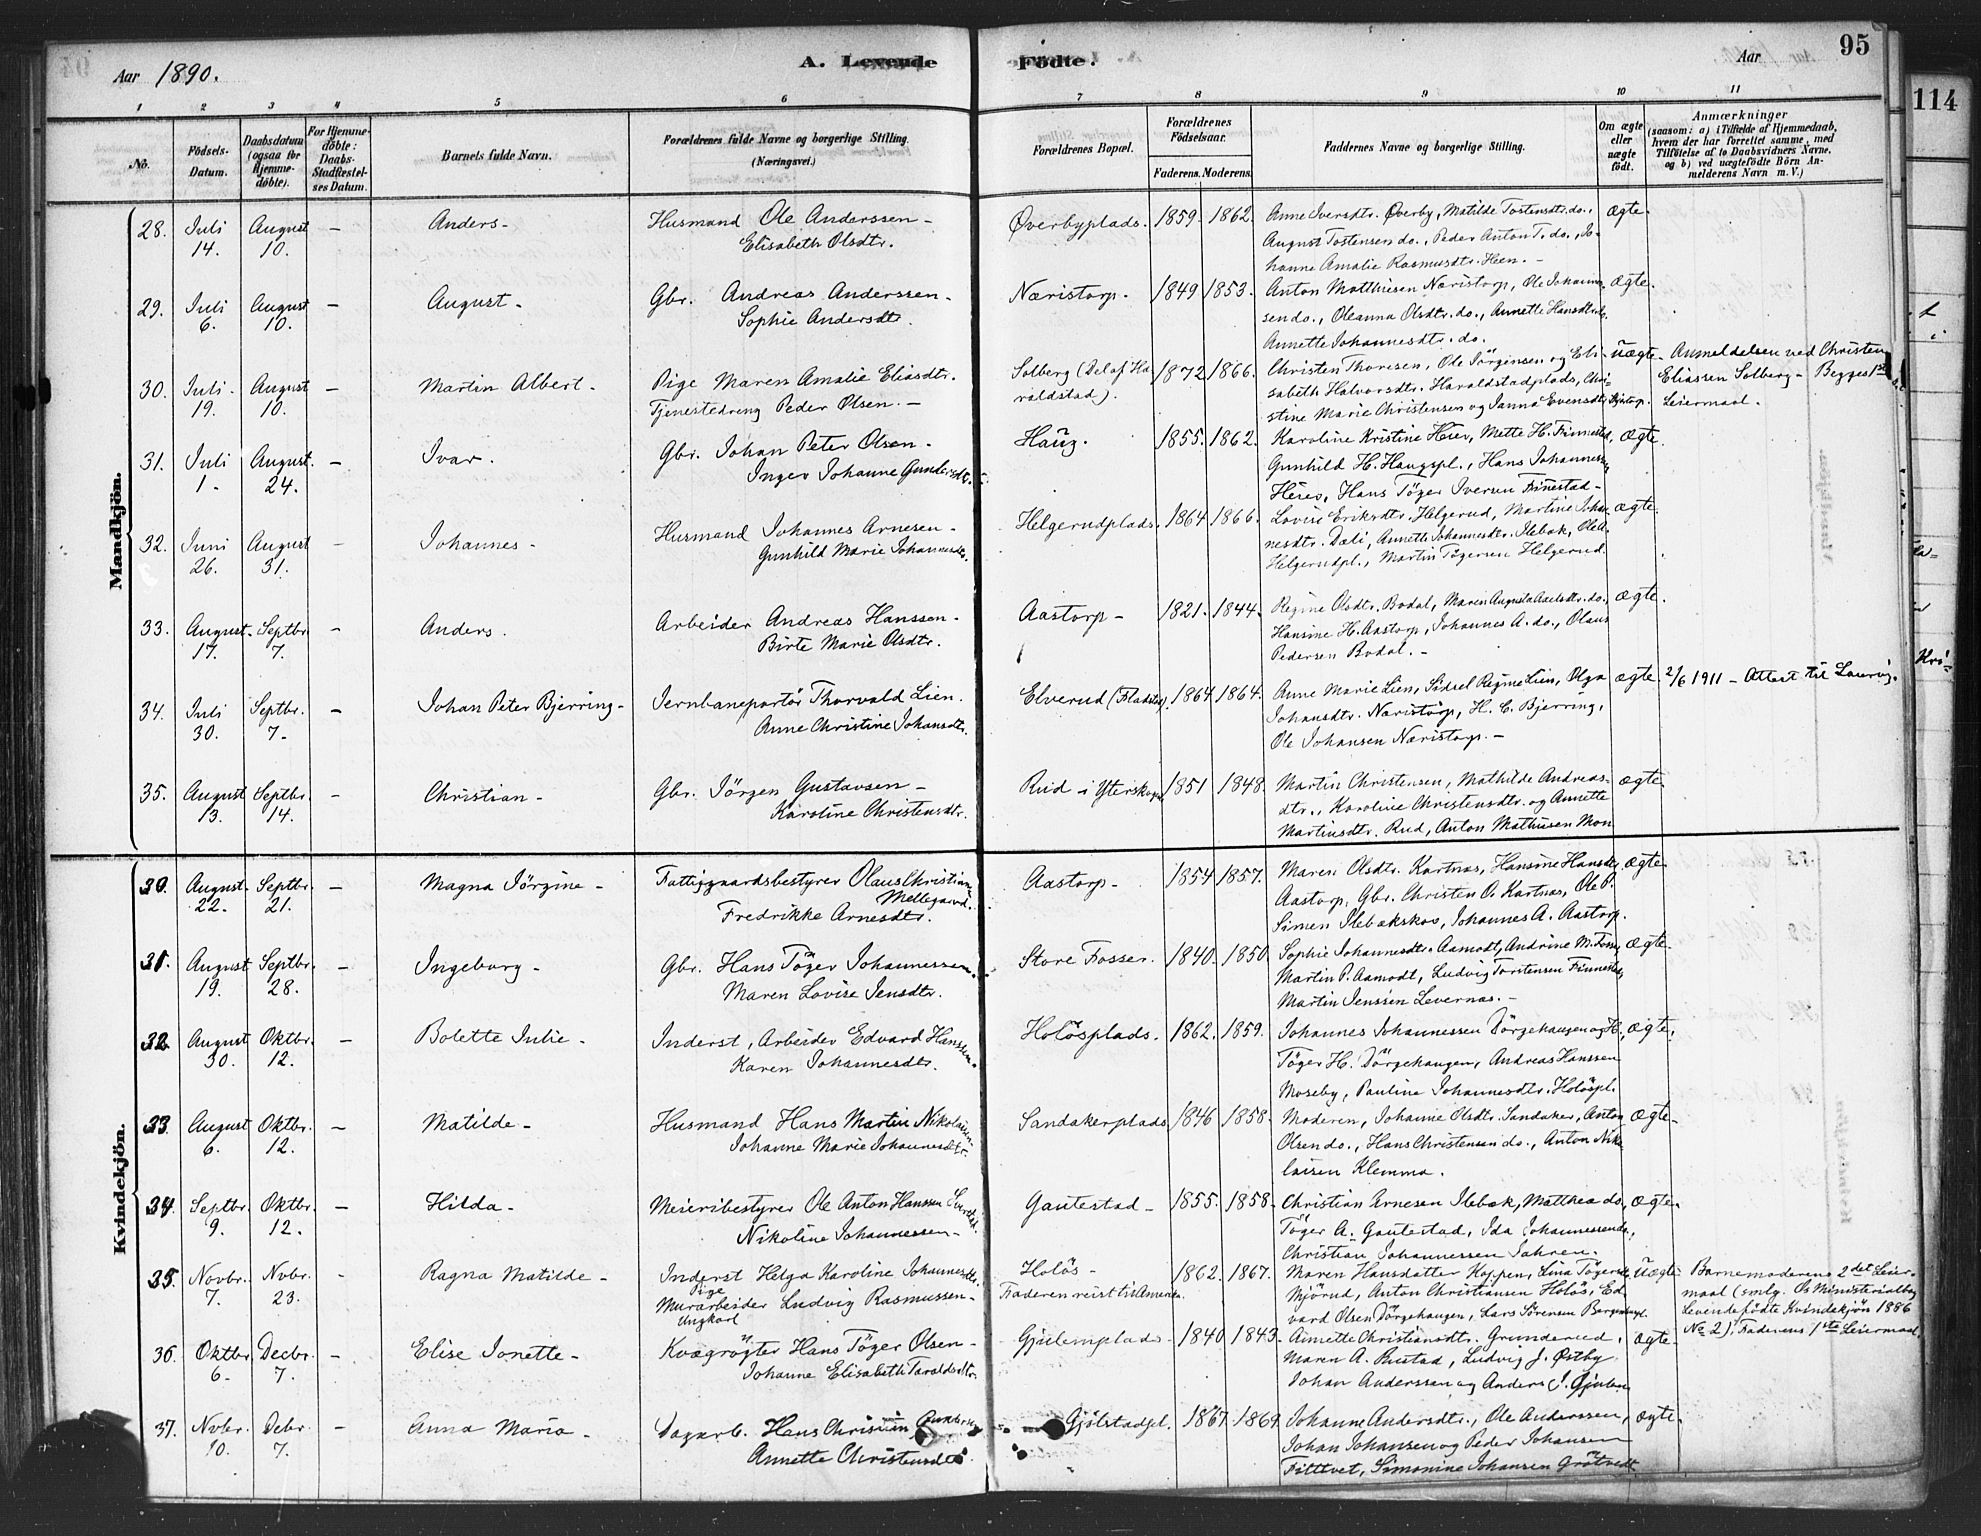 Aar 1890.
A. Levende
Fødte.
Aar
95
114
1 2 3 4 5 6 7 8 9 10 11
No.
Fødsels-
Datum.
Daabsdatum
(ogsaa for
Hjemme-
døbte).
For Hjemme-
døbte:
Daabs-
Stadfæstel-
ses Datum.
Barnets fulde Navn.
Forældrenes fulde Navne og borgerlige Stilling.
(Næringsvei.)
Forældrenes Bopæl.
Forældrenes
Fødselsaar.
Faderens. Moderens.
Faddernes Navne og borgerlige Stilling.
Om ægte
eller
uægte
født.
Anmærkninger
(saasom: a) i Tilfælde af Hjemmedaab,
hvem der har forrettet samme, med
Tilføielse af to Daabsvidners Navne.
og b) ved uægtefødte Børn An-
melderens Navn m. V.)
Mandkjön.
28. Juli 14. August 10. – Anders – Husmand Ole Anderssen –
Elisabeth Olsdtr.
Øverbyplads. 1859. 1862. Anne Iversdtr. Øverby, Matilde Tostensdtr. do., ægte.
August Tostensen do., Peder Anton T. do., Jo-
hanne Amalie Rasmusdtr. Heen. –
29. Juli 6. August 10. – August – Gbr. Andreas Anderssen –
Sophie Andersdtr.
Næristorp. 1849 1853. Anton Matthisen Næristorp, Ole Johannes- ægte.
sen do., Oleanna Olsdtr. do., Annette Hansdtr. do.
Annette Johannesdtr. do.
30. Juli 19. August 10. – Martin Albert – Pige Maren Amalie Eliasdtr.
Tjenestedreng Peder Olsen. –
Solberg (Del af Ha-
raldstad). 1872 1866. Christen Thoresen, Ole Jörgensen og Eli- uægte
sabeth Halvorsdtr. Haraldstadplads, Chri-
stine Marie Christensen og Janna Evensdtr.
Anmeldelsen ved Christen
Eliassen Solberg – Begges 1ste
Leiermaal.
31. Juli 1. August 24. – Ivar. Gbr. Johan Peter Olsen –
Inger Johanne Gundersdtr.
Haug. 1855. 1862. Karoline Kristine Heier, Mette H. Finnestad, ægte.
Gunhild H. Haugspl., Hans Johannessen
Heier, Hans Töger Iversen Finnestad –
32. Juni 26. August 31. – Johannes – Husmand Johannes Arnesen –
Gunhild Marie Johannesdtr.
Helgerudplads. 1864 1866. Lovise Eriksdtr. Helgerud, Martine Johan- ægte.
nesdtr. Dæli, Annette Johannesdtr. Ilebæk, Ole A.
Helgerudpl., Martin Tögersen Helgerud.
33. August 17. Septbr. 7. – Anders. Arbeider Andreas Hanssen –
Birte Marie Olsdtr.
Aastorp – 1821. 1844. Regine Olsdtr. Bodal, Maren Augusta Axelsdtr. do., ægte.
Hansine H. Aastorp, Johannes A. do., Olaus
Pedersen Bodal. –
34. Juli 30. Septbr. 7. – Johan Peter Bjerring – Jernbaneportör Thorvald Lien.
Anne Christine Johansdtr.
Elverud (Fladstad). 1864. 1864. Anne Marie Lien, Sidsel Regine Lien, Olga ægte.
Johansdtr. Næristorp, H. C. Bjerring,
Ole Johansen Næristorp. –
2/6 1911 – Attest til Laurvig.
35. August 13. Septbr. 14. – Christian – Gbr. Jörgen Gustavsen –
Karoline Christensdtr.
Rud i Ytterskogen 1851 1848. Martin Christensen, Mathilde Andreas- ægte.
dtr., Karoline Christensdtr. og Annette
Martinsdtr. Rud, Anton Mathisen Mon
Kvindekjön.
30. August 22. Septbr. 21. – Magna Jörgine – Fattiggaardsbestyrer Olaus Christian
Mellegaard.
Fredrikke Arnesdtr.
Aastorp – 1854 1857. Maren Olsdtr. Kartnæs, Hansine Hansdtr. ægte.
Aastorp, Gbr. Christen O. Kartnæs, Ole P.
Simen Ilebækskov, Johannes A. Aastorp.
31. August 19. Septbr. 28. – Ingeborg – Gbr. Hans Töger Johannessen.
Maren Lovise Jensdtr.
Store Fosser. 1840. 1850. Sophie Johannesdtr. Aamodt, Andrine M. Foss, ægte.
Martin P. Aamodt, Ludvig Torstensen Finnestad,
Martin Jenssen Levernæs. –
32. August 30. Oktbr. 12. – Bolette Julie – Inderst, Arbeider Edvard Hanssen.
Karen Johannesdtr.
Holösplads. 1862. 1859. Johannes Johannessen Dörgehaugen og H. ægte.
Töger H. Dörgehaugen, Andreas Hanssen
Moseby, Pauline Johannesdtr. Holöspl.
33. August 6. Oktbr. 12. – Matilde – Husmand Hans Martin Nikolaisen
Johanne Marie Johannesdtr.
Sandakerplads 1846 1858. Moderen, Johanne Olsdtr. Sandaker, Anton ægte –
Olsen do., Hans Christensen do., Anton Niko-
laisen Klemma.
34. Septbr. 9. Oktbr. 12. – Hilda – Meieribestyrer Ole Anton Hanssen
Nikoline Johannessen –
Gautestad – 1855. 1858. Christian Arnesen Ilebæk, Matthea do, ægte.
Töger A. Gautestad, Ida Johannessen do.,
Christian Johannessen Jahren.
35. Novbr. 7. Nvbr. 23. – Ragna Matilde – Inderst Pige Helga Karoline Johannesdtr.
Murarbeider Ungkarl Ludvig Rasmussen –
Holös –
Faderen reist til Amerika.
1862. 1867. Maren Hansdatter Koppen, Lina Tögersdtr. Uægte
Mjörud, Anton Christiansen Holös, Ed-
vard Olsen Dörgehaugen, Lars Sörensen
Barnemoderens 2det Leier-
maal (smlg. Os Ministerialbog
Levendefødte Kvindekjön 1886
No 2). Faderens 1ste Leiermaal.
36. Oktbr 6. Decbr. 7. – Elise Jonette – Kvægrögter Hans Töger Olsen –
Johanne Elisabeth Taraldsdtr.
Gjulemplads – 1840 1843. Annette Christiansdtr. Grunderud, ægte –
Maren A. Bustad, Ludvig J. Østby
Johan Anderssen og Anders J. Gjulem
37. Nvbr. 10. Debr. 7. – Anna Maria – Dagarb. Hans Christian
Annette Christensdtr.
Gjölstadpl. 1867 1869. Johanne Andersdtr., Ole Anderssen, ægte.
Johan Johansen og Peder Johansen
Fittvet, Simonine Johansen Grötvedt